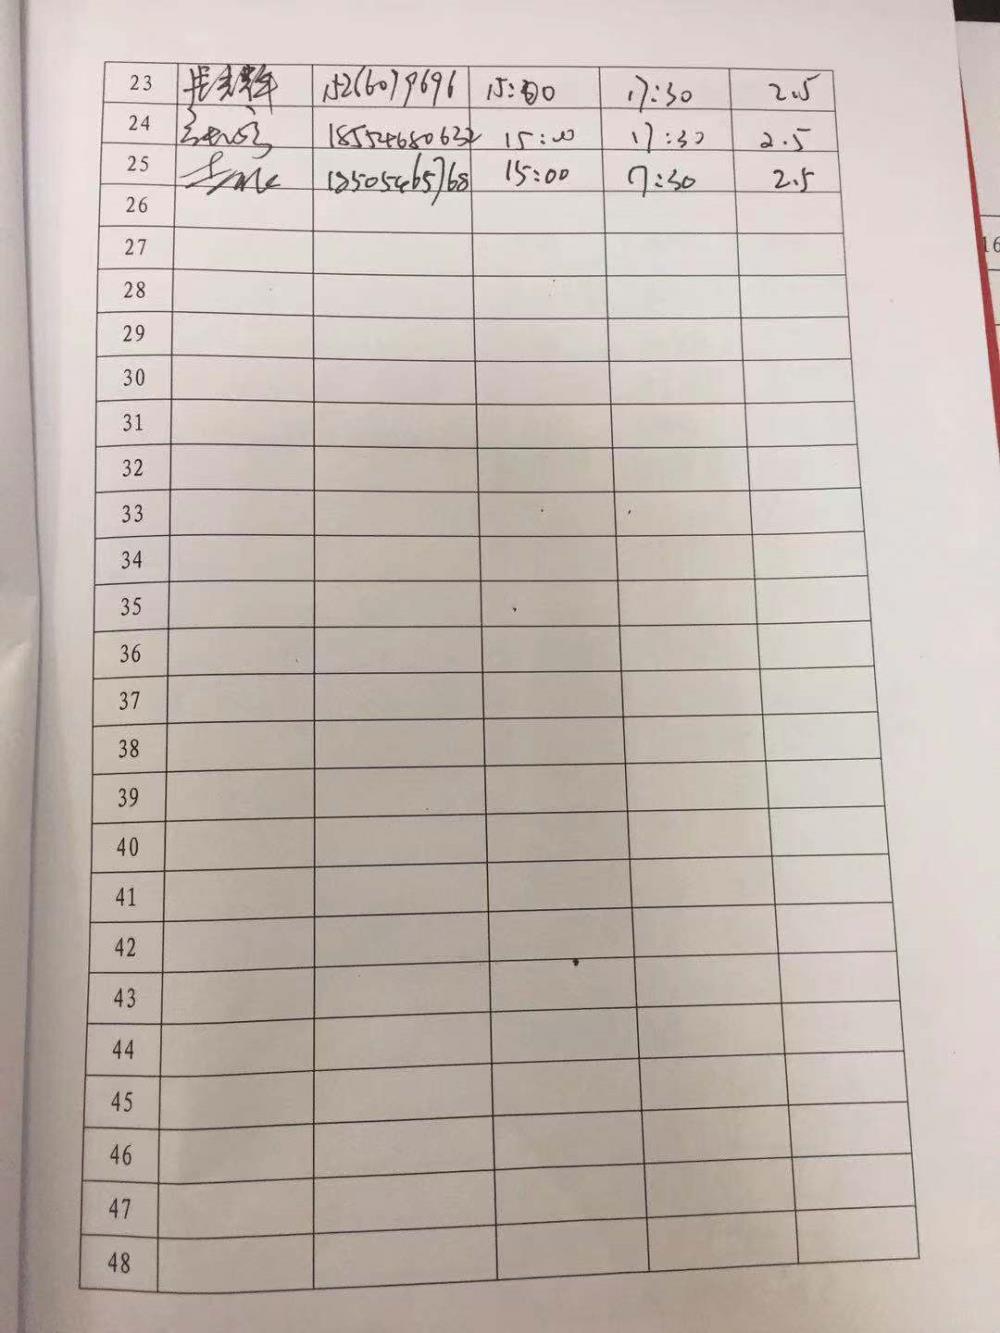 23 15216079696 15:00 17:30 2.5
24 18554680632 15:00 17:30 2.5
25 18505465768 15:00 7:30 2.5
26
27
28
29
30
31
32
33
34
35
36
37
38
39
40
41
42
43
44
45
46
47
48
16